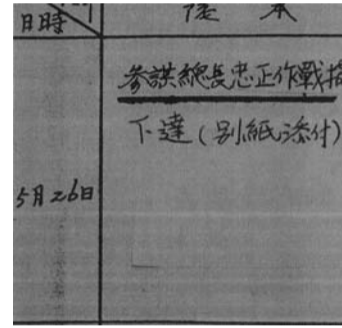 日時
本
參謀總長忠正作戰指
下達(別紙添付)
5月26日